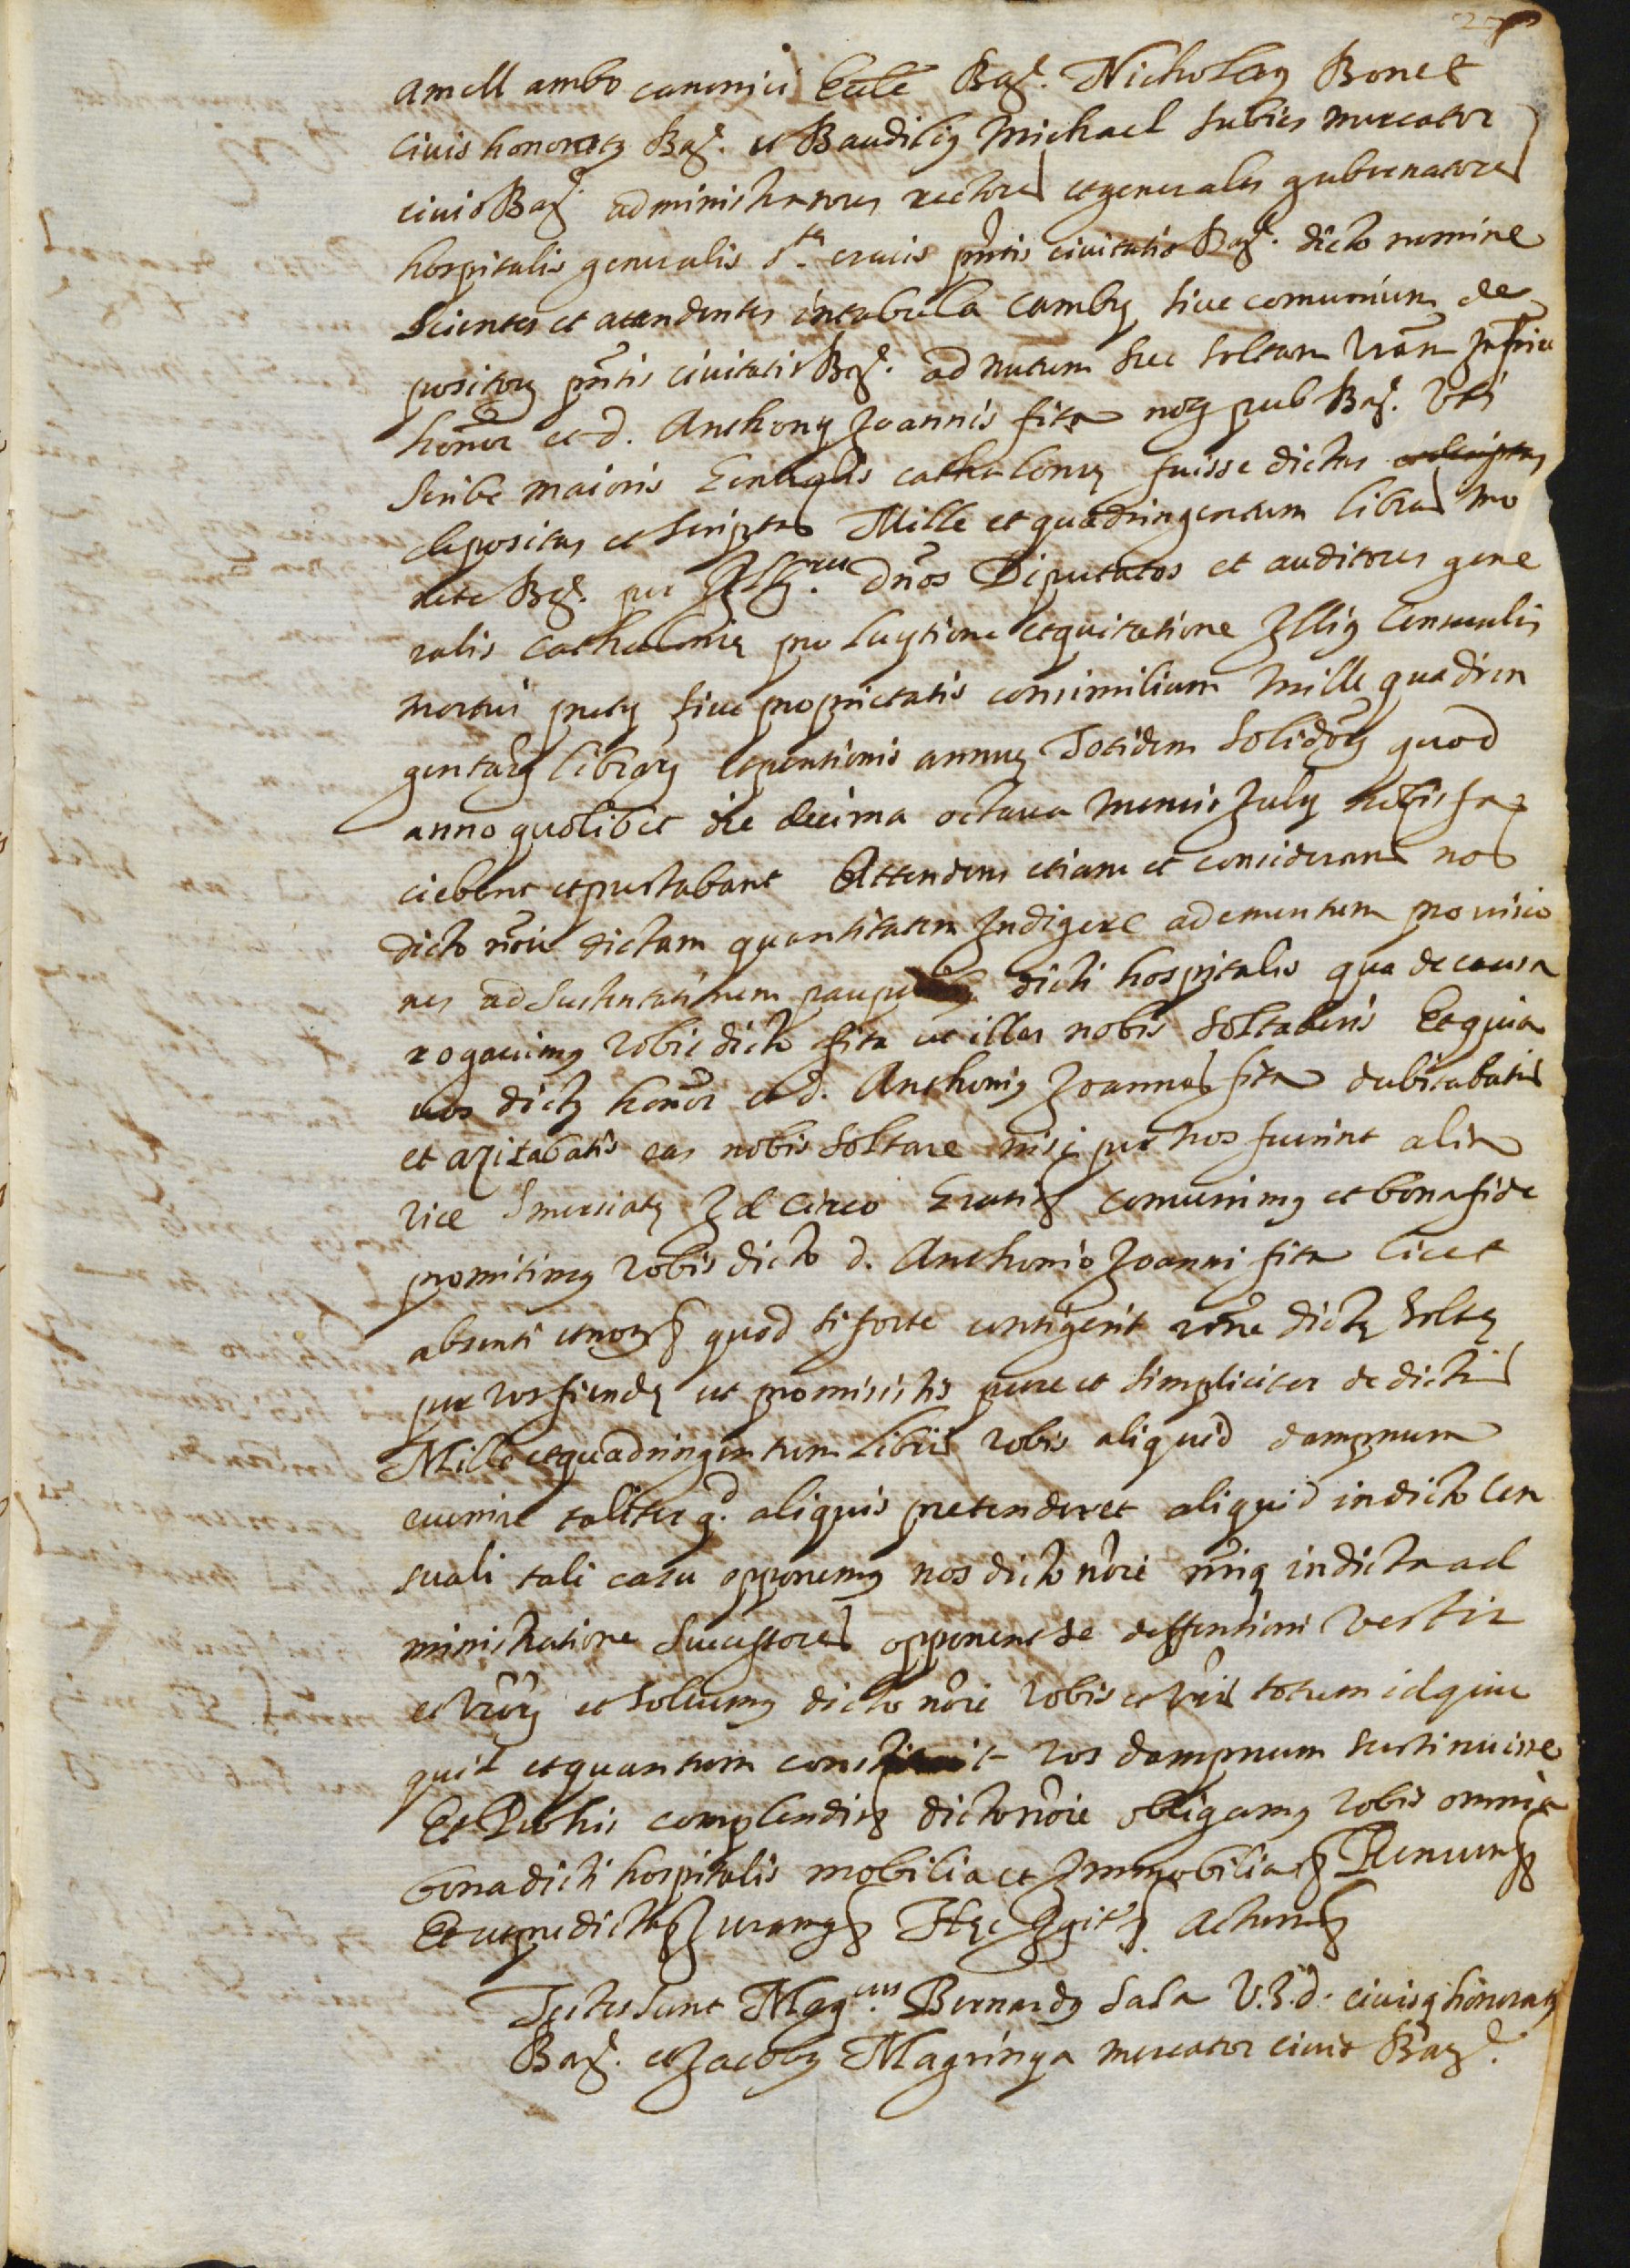 Amell ambo canonici Eccle Barȝ. Nicholaus Bonet
Civis honoratus Barȝ. et Baudilius Michael Subies mercator
civis Barȝ. administratores rectores et generales gubernatores
hospitalis generalis S.te crucis pñtis civitatis Barȝ. dicto nomine
Scientes et atendentes in tabula Cambii sive comunium de
positorum pñtis civitatis Barȝ. ad nutum seu soltam vram
honor et d. Anthonii Joannis fita notarii pub Barȝ. Uti
Scribe maioris Generalis cathalonie fuisse dictas
depositas et scriptas Mille et quadringentum libras mo
nete Barȝ. per Ill.res Dños Diputatos et auditores gene
ralis Cathalonie pro luytione et quitatione Illius Censualis
mortui pretii sive proprietatis consimilium mille quadrin
gentarum librarum et pentionis annue Totidem Solidorum quod
anno quolibet die decima octava mensis Julii nobis fa
ciebant et prestabant Attendens etiam et considerans nos
dicto nõie dictam quantitatem Indigere ad ementum provisio
nes ad sustentationem pauperum dicti hospitalis qua de causa
rogavimus vobis dicto fita ut illas nobis soltaberis Et quia
vos dictus honor et d. Anthonius Joannes fita dubitabatis
et agitabatis eas nobis soltare nisi per nos fuerint alia
vice Smersiate Id Circo Gratis comvenimus et bona fide
promitimus vobis dicto d. Anthonio Joanni fita licet
absenti et not quod si forte contigerit rõne dicte solte
per vos fiende ut promisistis pure et simpliciter de dictis
Mille et quadringentum libris vobis aliquid dampnum
evenire taliter q.d aliquis pretenderet aliquid in dicto Cen
suali tali casu opponemus nos dicto nõie in dicta ad
ministratione successores opponent se deffentioni vestri
et vrorum et solvemus dicto nõie vobis et vris totum id quic
quid et quantum constiterit vos dampnum sustinuisse
Et Pro his complendis dicto nõie obligamus vobis omnia
bona dicti hospitalis mobilia et Immobilia Renun
Et ut predicta Juramus Hec Igitur Actum
Testes sunt Mag.cus Bernardus Sala U.J.d. civisq honoratus
Barȝ. et Jacobus Magrinya mercator civis Barȝ.